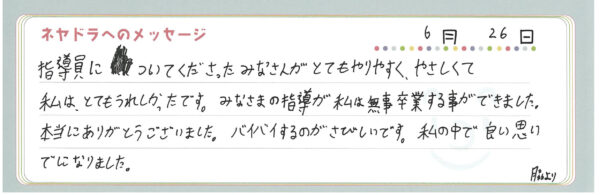 ネヤドラへのメッセージ
6月 26日
指導員に ついてくださったみなさんがとてもやりやすく、やさしくて
私は、とてもうれしかったです。みなさまの指導が私は無事卒業する事ができました。
本当にありがとうございました。バイバイするのがさびしいです。私の中で良い思い
でになりました。
より